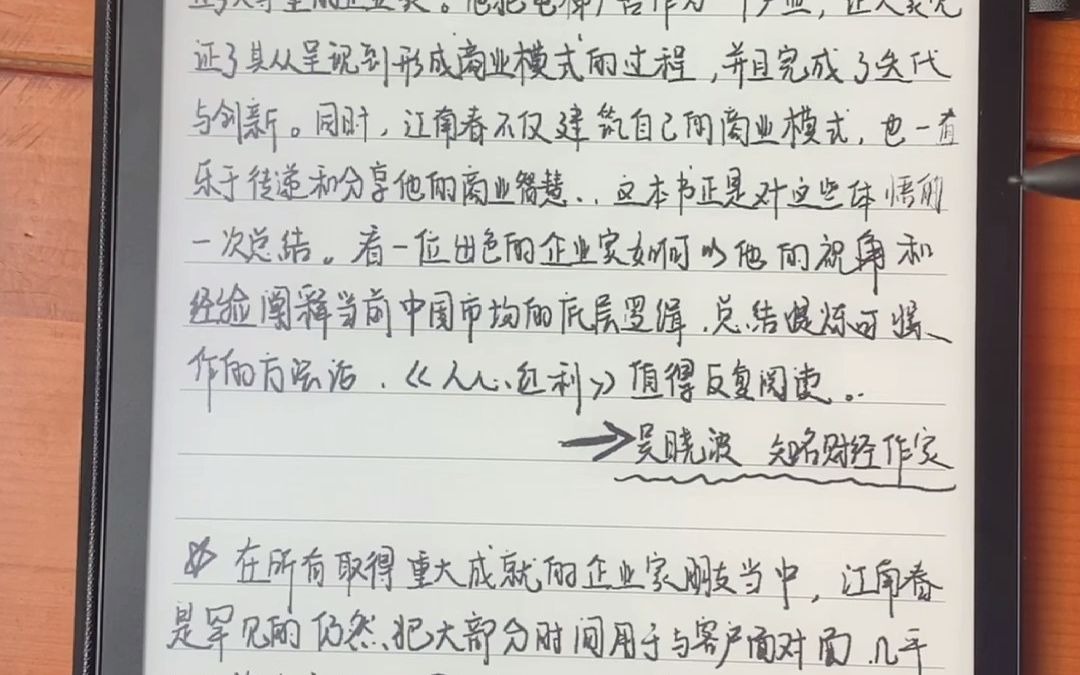 的企业家。他把电梯广告作为一个产业,让大家见
证了其从呈现到形成商业模式的过程,并且完成了迭代
与创新。同时,江南春不仅建筑自己的商业模式,也一直
乐于传递和分享他的商业智慧.,这本书正是对这些体悟的
一次总结。看一位出色的企业家如何以他的视角和
经验阐释当前中国市场的底层逻辑,总结提炼可操
作的方法论,《人心红利》值得反复阅读。
→吴晓波 知名财经作家
在所有取得重大成就的企业家朋友当中,江南春
是罕见的仍然把大部分时间用于与客户面对面,几乎